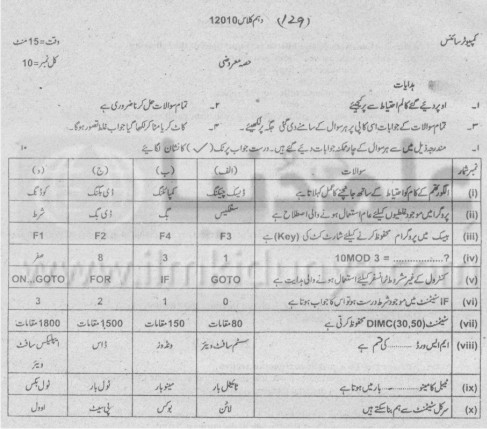 دہم کلاس 12010 (129)
کمپیوٹر سائنس
وقت=15 منٹ
حصہ معروضی
کل نمبر=10
ہدایات
۱۔ اوپر دیئے گئے کالم احتیاط سے پر کیجئے ۲۔ تمام سوالات حل کرنا ضروری ہے
۳۔ تمام سوالات کے جوابات اسی کاپی پر ہر سوال کے سامنے دی گئی جگہ پر لکھیئے۔ ۴۔ کاٹ کر یا مٹا کر لکھا گیا جواب غلط تصور ہوگا۔
۱۔ مندرجہ ذیل میں سے ہر سوال کے چار ممکنہ جوابات دیئے گئے ہیں۔ درست جواب پر ٹک کا نشان لگائیے ۱۰
نمبر شمار سوالات (الف) (ب) (ج) (د)
(i) الگورتھم کے کام کو احتیاط کے ساتھ جانچنے کا عمل کہلاتا ہے ڈیسک چیکنگ کمپائلنگ ڈی بگنگ کوڈنگ
(ii) پروگرام میں موجود غلطیوں کیلئے عام استعمال ہونے والی اصطلاح ہے سنٹیکس بگ ڈی بگ شرط
(iii) بیسک میں پروگرام محفوظ کرنے کیلئے شارٹ کٹ کی (Key) ہے F3 F4 F2 F1
(iv) 10MOD 3 = ................? 1 3 8 صفر
(v) کنٹرول کے غیر مشروط ٹرانسفر کیلئے استعمال ہونے والی ہدایت ہے GOTO IF FOR ON...GOTO
(vi) IF سٹیٹمنٹ میں موجود شرط درست ہو تو اس کا جواب ہوتا ہے 0 1 2 3
(vii) سٹیٹمنٹ DIMC(30,50) محفوظ کرتی ہے 80 مقامات 150 مقامات 1,500 مقامات 1800 مقامات
(viii) ایم ایس ورڈ ............ کی قسم ہے سسٹم سافٹ ویئر ونڈوز ڈاس اپلیکیشن سافٹ ویئر
(ix) ٹیبل کا مینو ............ بار میں ہوتا ہے ٹائیٹل بار مینو بار ٹول بار ٹول بکس
(x) سرکل سٹیٹمنٹ سے ہم بنا سکتے ہیں لائن بوکس پی سیٹ اوول